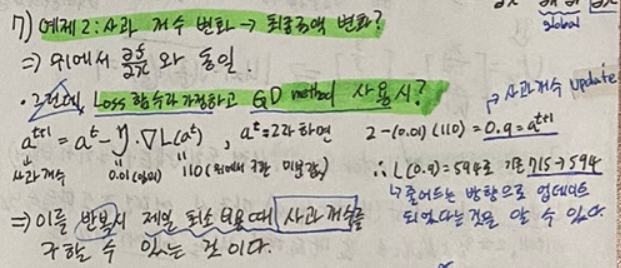 global
7) 예제2: 사과 개수 변화 → 최종금액 변화?
⇒ 위에서 ∂f/∂x 와 동일.
• 그런데, Loss 함수라 가정하고 GD method 사용시?
→ 사과개수 update
a^{t+1} = a^t - η·∇L(a^t), a^t=2라 하면 2-(0.01)(110) = 0.9 = a^{t+1}
사과개수 0.01(임의) 110(위에서 구한 미분값)
∴ L(0.9)=594로 기존 715→594
↳ 줄어드는 방향으로 업데이트
되었다는 것을 알 수 있다.
⇒ 이를 반복시 제일 최소 비용때 사과개수를
구할 수 있는 것이다.